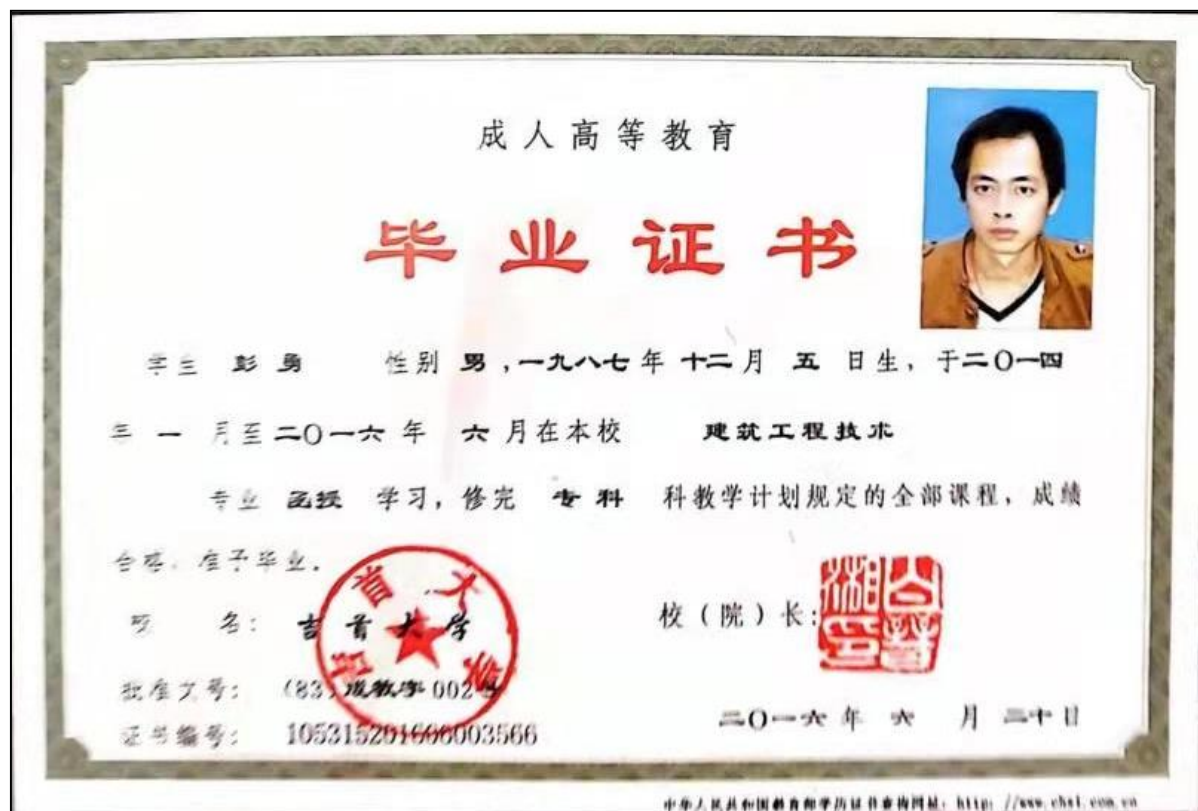 成人高等教育
毕业证书
学生 彭勇 性别 男,一九八七年 十二月 五 日生,于二〇一四
年 一 月至二〇一六年 六月在本校 建筑工程技术
专业 函授 学习,修完 专科 科教学计划规定的全部课程,成绩
合格,准予毕业。
校 名: 吉首大学
校(院)长:
批准文号: (83)成教字002号
证书编号: 105315201606003566
二〇一六年 六 月 三十日
中华人民共和国教育部学历证书查询网址: http: //www.chsi.com.cn